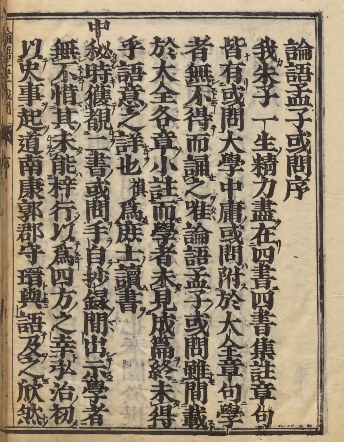 論語孟子或問序
我朱子一生精力盡在四書四書集註章句
皆有或問大學中庸或問附於大全章句學
者無不得而誦之唯論語孟子或問雖間載
於大全各章小註而學者未見成篇終未得
乎語意之詳也 爲庶士讀書
中秘時獲覩二書或問手自抄錄間出示學者
無不惜其未能梓行以爲四方之幸弘治初
以史事起道南康郭郡守瑨與語及之欣然